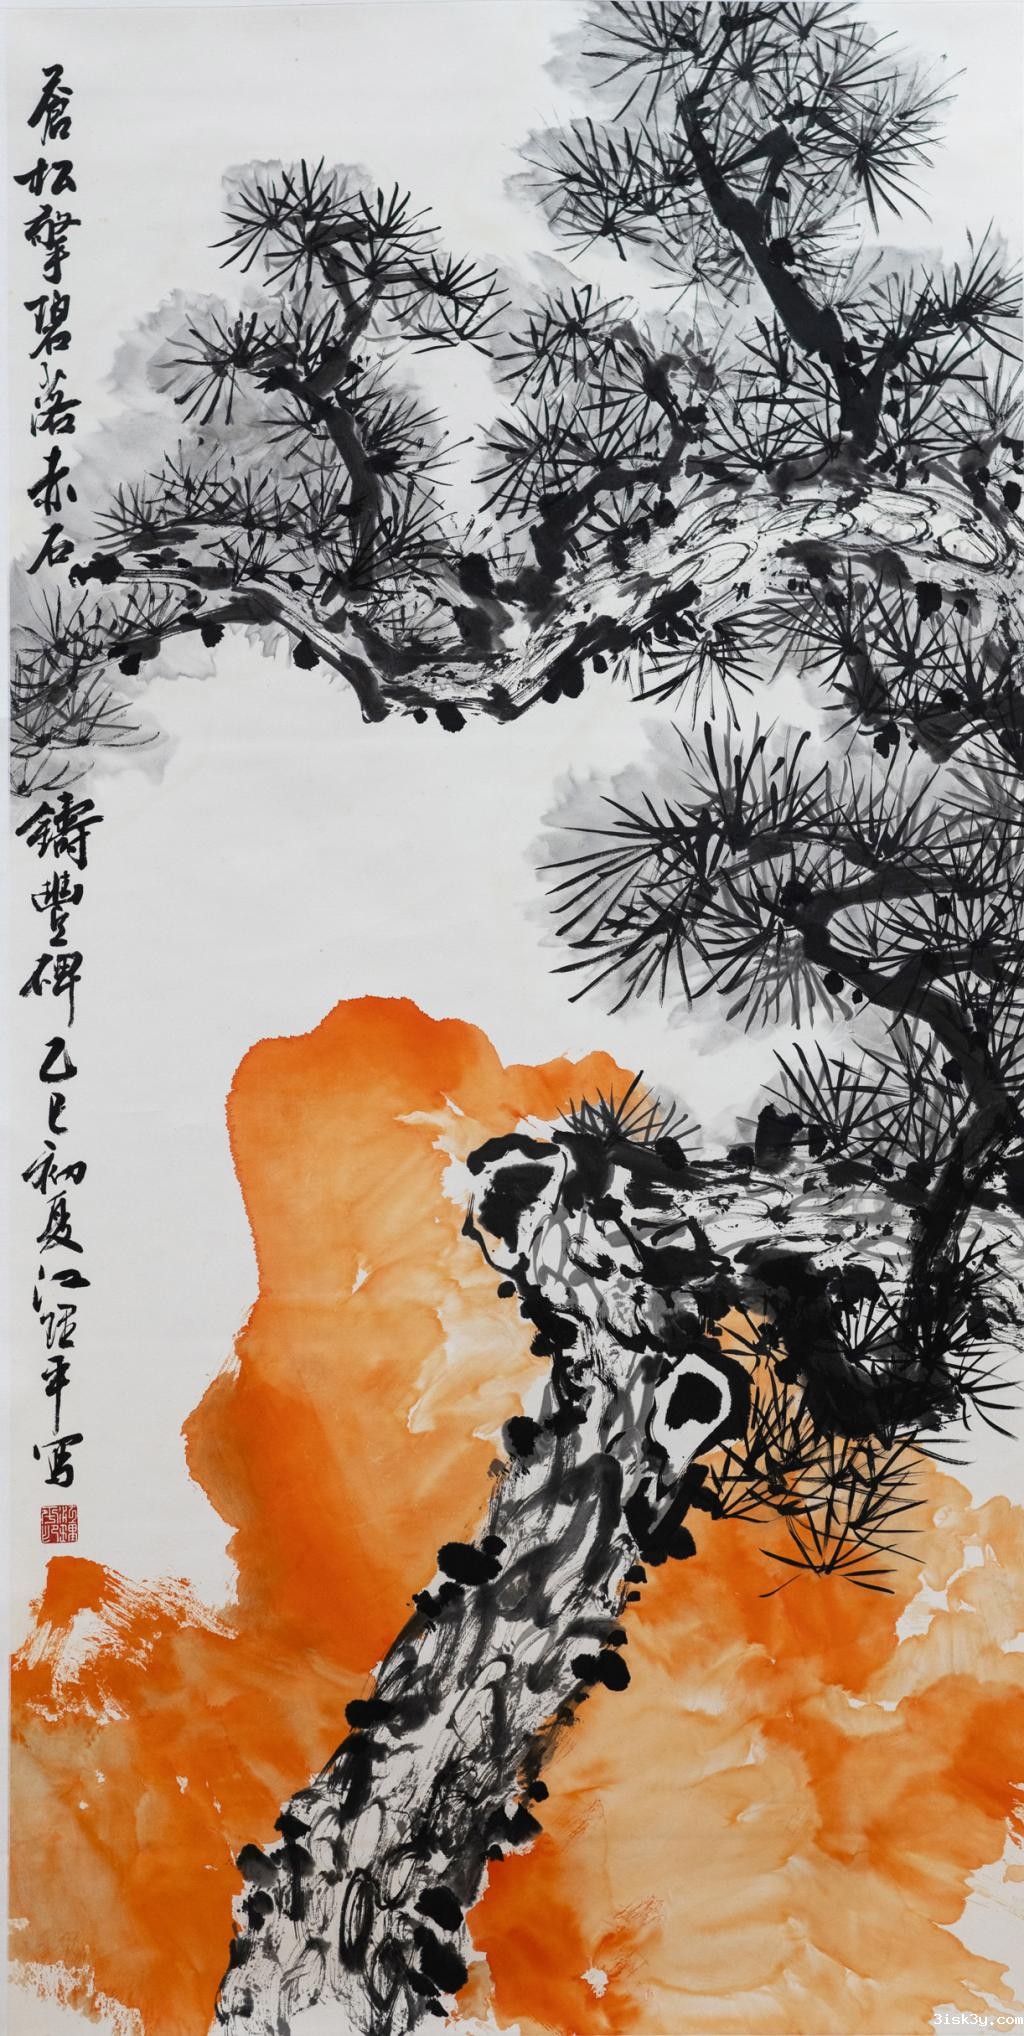 蒼松擎碧落赤石
鑄豐碑乙巳初夏江
平寫
3isk3y.com